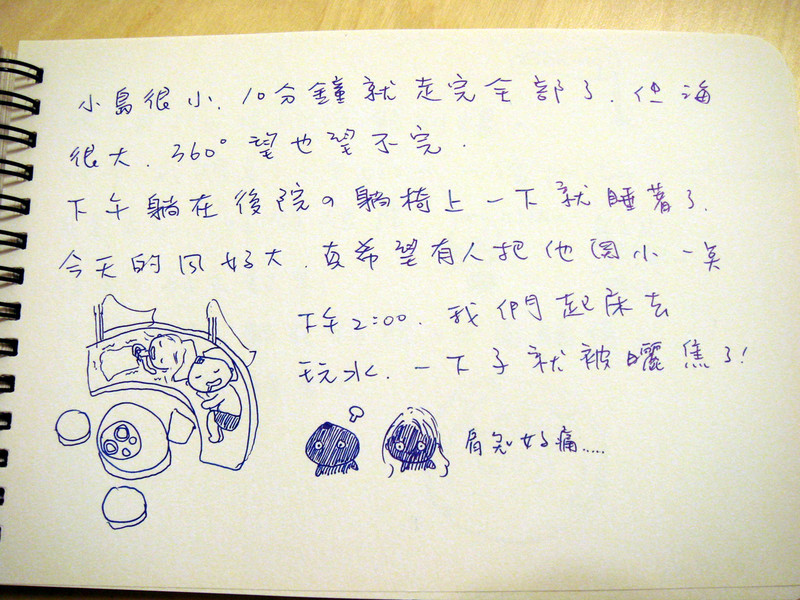 小島很小. 10分鐘就走完全部了. 但海
很大. 360°望也望不完.
下午躺在後院の躺椅上一下就睡著了.
今天的风好大. 真希望有人把他関小一點
下午2:00. 我們起床去
玩水. 一下子就被曬焦了!
肩ㄉ好痛.....